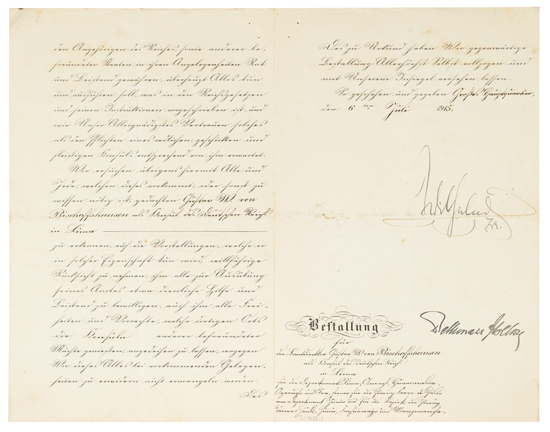 den Angehörigen des Reiches sowie anderer be-
freundeter Staaten in ihren Angelegenheiten Rat
und Beistand gewähren, überhaupt Alles tun
und ausführen soll, was in den Reichsgesetzen
und seinen Instruktionen vorgeschrieben ist, und
wie Unser Allergnädigstes Vertrauen solches
als den Pflichten eines redlichen, geschickten und
fleißigen Konsuls entsprechend von ihm erwartet.
Wir ersuchen übrigens hiermit Alle und
Jede, welchen dieses vorkommt, oder sonst zu
wissen nötig ist, gedachten Gustav W. von
Bischoffshausen als Konsul des Deutschen Reichs
in Lima
zu erkennen, auf die Vorstellungen, welche er
in solcher Eigenschaft tun wird, willfährige
Rücksicht zu nehmen, ihm alle zur Ausübung
seines Amtes etwa dienliche Hilfe und
Beistand zu bewilligen, auch ihm alle Frei-
heiten und Vorrechte, welche dortigen Orts
die Konsuln anderer befreundeter
Mächte genießen, angedeihen zu lassen, wogegen
Wir dieses Alles bei vorkommenden Gelegen-
heiten zu erwidern nicht ermangeln werden.
Des
Des zu Urkund haben Wir gegenwärtige
Bestallung Allerhöchst Selbst vollzogen und
mit Unserem Insiegel versehen lassen.
So geschehen und gegeben Großes Hauptquartier,
den 6 ten Juli 1915.
Wilhelm
I.R.
Bethmann Hollweg
Bestallung
für
Gustav W. von Bischoffshausen
als Konsul des Deutschen Reichs
in Lima